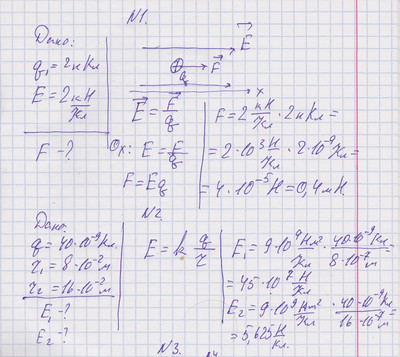 N1.
Дано:
q₁ = 2нКл
E = 2 кН/Кл
F - ?
E
q
F
x
E = F/q
Ox: E = F/q
F = Eq
F = 2 кН/Кл · 2нКл =
= 2·10³ Н/Кл · 2·10⁻⁹Кл =
= 4·10⁻⁵Н = 0,4мН
N2.
Дано:
q = 40·10⁻⁹Кл.
r₁ = 8·10⁻²м
r₂ = 16·10⁻²м
E₁ - ?
E₂ - ?
E = k q/r
E₁ = 9·10⁹ Нм²/Кл · 40·10⁻⁹Кл/8·10⁻²м =
= 45·10² Н/Кл
E₂ = 9·10⁹ Нм²/Кл · 40·10⁻⁹Кл/16·10⁻²м =
= 5,625 Н/Кл.
N3.